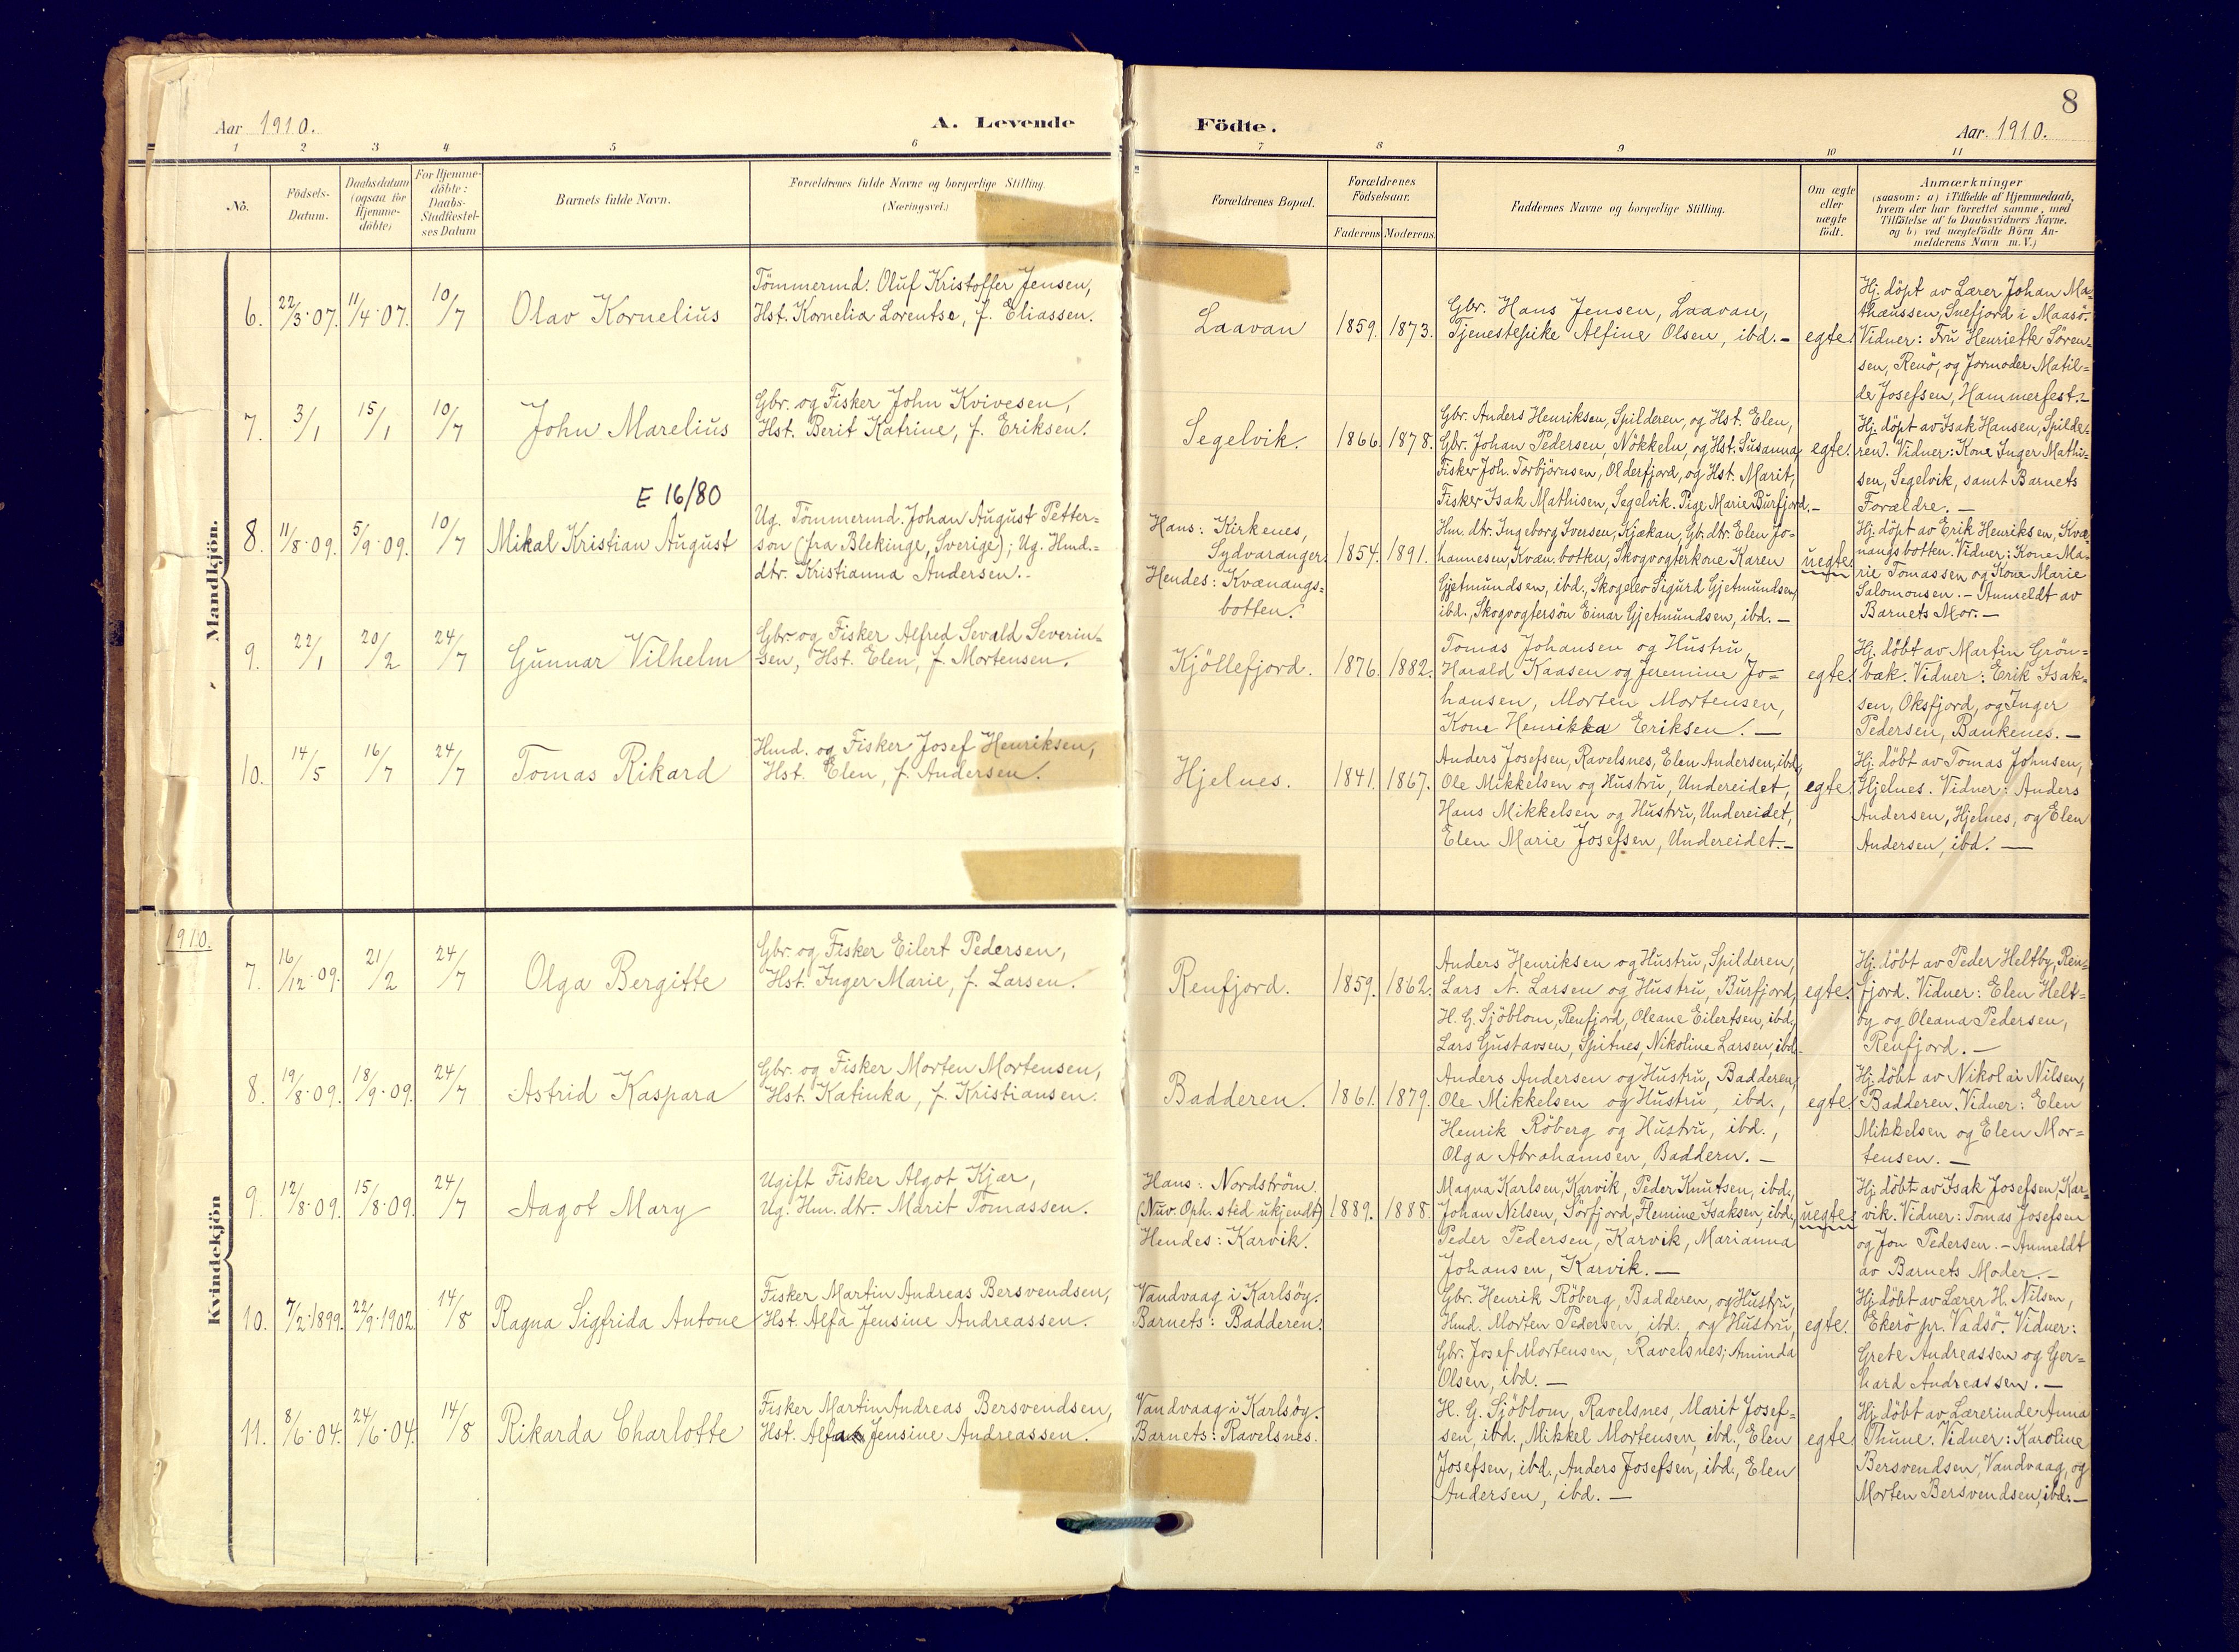 8
Aar 1910.
A. Levende
Födte.
Aar. 1910.
1 2 3 4 5 6 7 8 9 10 11
No.
Födsels-
Datum.
Daabsdatum
(ogsaa for
Hjemme-
döbte)
For Hjemme-
döbte:
Daabs-
Stadfæstel-
ses Datum
Barnets fulde Navn.
Forældrenes fulde Navne og borgerlige Stilling.
(Næringsvei.)
Forældrenes Bopæl.
Forældrenes
Födselsaar.
Faderens Moderens.
Faddernes Navne og borgerlige Stilling.
Om ægte
eller
uægte
födt.
Anmærkninger
(saasom: a) i Tilfælde af Hjemmedaab,
hvem der har forrettet samme, med
Tilföielse af to Daabsvidners Navne.
og b) ved uægtefödte Börn An-
melderens Navn m. V.)
Mandkjön.
6.
22/3·07.
11/4·07.
10/7
Olav Kornelius
Tömmermd. Oluf Kristoffer Jensen,
Hst. Kornelia Lorentse, f. Eliassen.
Laavan
1859.
1873.
Gbr. Hans Jensen, Laavan,
Tjenestepike Alfine Olsen, ibd. –
egte.
Hj. döpt av Lærer Johan Ma-
thæussen, Snefjord i Maasö.
Vidner: Fru Henriette Sören-
sen, Renö, og Jormoder Matil-
de Josefsen, Hammerfest. –
7.
3/1
15/1
10/7
John Marelius
Gbr. og Fisker John Kvivesen,
Hst. Berit Katrine, f. Eriksen.
Segelvik.
1866.
1878.
Gbr. Anders Henriksen, Spilderen, og Hst. Elen,
Gbr. Johan Pedersen, Nökkeln, og Hst. Susanna,
Fisker Joh. Torbjörnsen, Olderfjord, og Hst. Marit,
Fisker Isak Mathisen, Segelvik. Pige Marie Burfjord. –
egte.
Hj. döpt av Isak Hansen, Spilde-
ren. Vidner: Kone Inger Mathi-
sen, Segelvik, samt Barnets
Forældre. –
E 16/80
8.
11/8·09.
5/9·09.
10/7
Mikal Kristian August
Ug. Tömmermd. Johan August Petter-
son (fra Blekinge, Sverige); Ug. Hmd.-
dtr. Kristianna Andersen. –
Hans: Kirkenes,
Sydvaranger.
Hendes: Kvænangs-
botten.
1854.
1891.
Hm. dtr. Ingeborg Iversen, Kjækan, Gb. dtr. Elen Jo-
hannesen, Kvæn. botten, Skogvogterkone Karen
Gjetmundsen, ibd., Skogelev Sigurd Gjetmundsen,
ibd., Skogvogtersön Einar Gjetmundsen, ibd. –
uegte.
Hj. döpt av Erik Henriksen, Kvæ-
nangsbotten. Vidner: Kone Ma-
rie Tomassen og Kone Marie
Salomonsen. – Anmeldt av
Barnets Mor. –
9.
22/1
20/2
24/7
Gunnar Vilhelm
Gbr. og Fisker Alfred Sevald Severin-
sen, Hst. Elen, f. Mortensen.
Kjöllefjord.
1876.
1882.
Tomas Johansen og Hustru,
Harald Kaasen og Jeremine Jo-
hansen, Morten Mortensen,
Kone Henrikka Eriksen. –
egte.
Hj. döbt av Martin Grön-
bæk. Vidner: Erik Isak-
sen, Oksfjord, og Inger
Pedersen, Bankenes. –
10.
14/5
16/7
24/7
Tomas Rikard
Hmd. og Fisker Josef Henriksen,
Hst. Elen, f. Andersen.
Hjelnes.
1841.
1867.
Anders Josefsen, Ravelsnes, Elen Andersen, ibd.,
Ole Mikkelsen og Hustru, Undereidet,
Hans Mikkelsen og Hustru, Undereidet,
Elen Marie Josefsen, Undereidet. –
egte.
Hj. döbt av Tomas Johnsen,
Hjelnes. Vidner: Anders
Andersen, Hjelnes, og Elen
Andersen, ibd. –
1910.
Kvindekjön
7.
16/12·09.
21/2
24/7
Olga Bergitte
Gbr. og Fisker Eilert Pedersen,
Hst. Inger Marie, f. Larsen.
Renfjord.
1859.
1862.
Anders Henriksen og Hustru, Spilderen,
Lars N. Larsen og Hustru, Burfjord,
H. G. Sjöblom, Renfjord, Oleane Eilertsen, ibd.,
Lars Gustavsen, Spitnes, Nikoline Larsen, ibd.
egte.
Hj. döbt av Peder Heltby, Ren-
fjord. Vidner: Elen Helt-
by og Oleana Pedersen,
Renfjord. –
8.
19/8·09.
18/9·09.
24/7
Astrid Kaspara
Gbr. og Fisker Morten Mortensen,
Hst. Katinka, f. Kristiansen.
Badderen.
1861.
1879.
Anders Andersen og Hustru, Badderen,
Ole Mikkelsen og Hustru, ibd.,
Henrik Röberg og Hustru, ibd.,
Olga Abrahamsen, Baddern. –
egte.
Hj. döbt av Nikolai Nilsen,
Badderen. Vidner: Elen
Mikkelsen og Elen Mor-
tensen. –
9.
12/8·09.
15/8·09.
24/7
Aagot Mary
Ugift Fisker Algot Kjær,
Ug. Hm. dtr. Marit Tomassen.
Hans: Nordström.
(Nuv. Oph. sted ukjendt)
Hendes: Karvik.
1889.
1888.
Magna Karlsen, Karvik, Peder Knutsen, ibd.,
Johan Nilsen, Sörfjord, Flemine Isaksen, ibd.,
Peder Pedersen, Karvik, Marianna
Johansen, Karvik. –
uegte.
Hj. döbt av Isak Josefsen, Kar-
vik. Vidner: Tomas Josefsen
og Jon Pedersen. – Anmeldt
av Barnets Moder. –
10.
7/2·1899.
22/9·1902
14/8
Ragna Sigfrida Antone
Fisker Martin Andreas Bersvendsen,
Hst. Alfa Jensine Andreassen.
Vandvaag i Karlsöy.
Barnets: Badderen.
Gbr. Henrik Röberg, Badderen, og Hustru,
Hmd. Morten Pedersen, ibd., og Hustru,
Gbr. Josef Mortensen, Ravelsnes, Aminda
Olsen, ibd. –
egte.
Hj. döbt av Lærer H. Nilsen,
Ekerö pr. Vadsö. Vidner:
Grete Andreassen og Ger-
hard Andreassen. –
11.
8/6·04.
24/6·04.
14/8
Rikarda Charlotte
Fisker Martin Andreas Bersvendsen,
Hst. Alfa Jensine Andreassen.
Vandvaag i Karlsöy.
Barnets: Ravelsnes.
H. G. Sjöblom, Ravelsnes, Marit Josef-
sen, ibd., Mikkel Mortensen, ibd., Elen
Josefsen, ibd., Anders Josefsen, ibd., Elen
Andersen, ibd. –
egte.
Hj. döbt av Lærerinde Anna
Thune. Vidner: Karoline
Bersvendsen, Vandvaag, og
Morten Bersvendsen, ibd. –